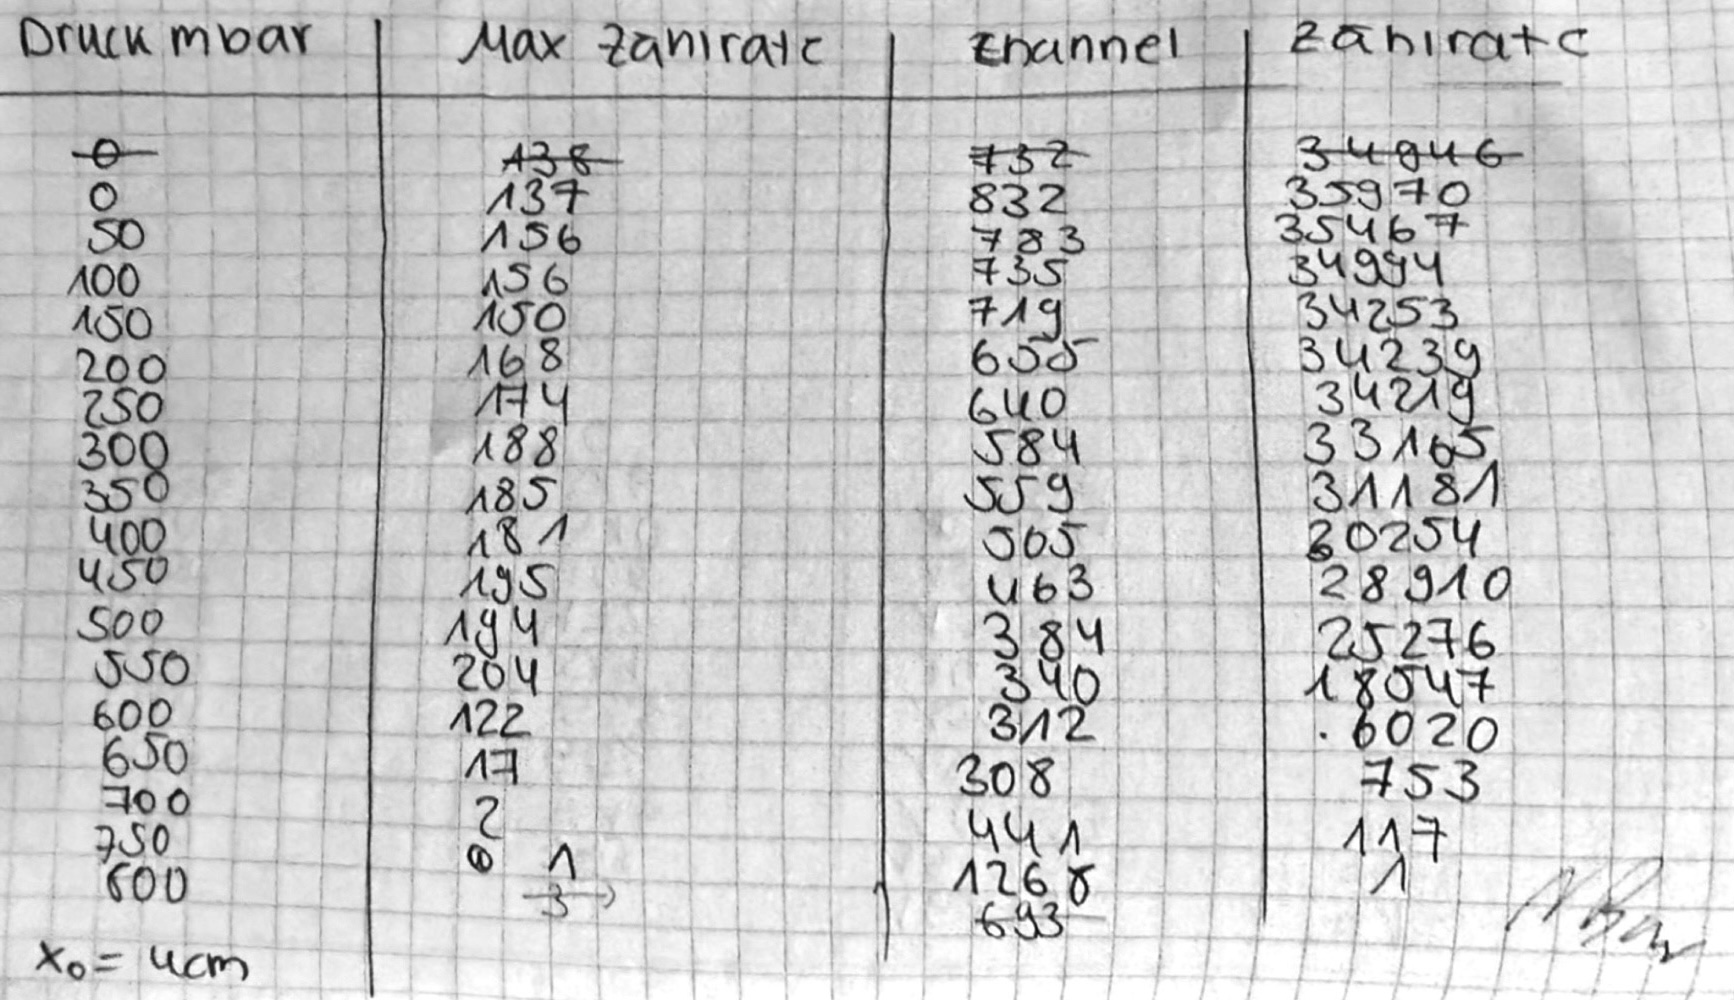 Druck mbar Max Zählrate Channel Zählrate
0 138 732 34946
0 137 832 35970
50 156 783 35467
100 156 735 34994
150 150 719 34253
200 168 655 34239
250 174 640 34219
300 188 584 33165
350 185 559 31181
400 181 505 30254
450 195 463 28910
500 194 384 25276
550 204 340 18547
600 122 312 6020
650 17 308 753
700 2 441 117
750 0 1 1268 1
800 3 693
x₀ = 4cm